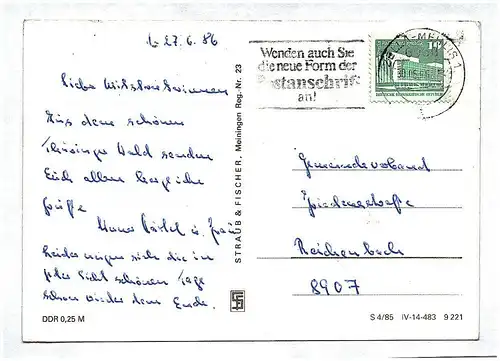 27.6.86
Liebe Mitstreiterinnen
Aus dem schönen
Thüringer Wald senden
Euch allen herzliche
Grüße
Hans u. Frau
Leider neigen sich die in
jeder Sicht schönen Tage
schon wieder dem Ende.
DDR 0,25 M
STRAUB & FISCHER, Meiningen Reg.-Nr. 23
Wenden auch Sie
die neue Form der
Postanschrift
an!
ZELLA-MEHLIS 1
10
DEUTSCHE DEMOKRATISCHE REPUBLIK
Gemeindeverband
Reichenbach
8907
S 4/85 IV-14-483 9 221